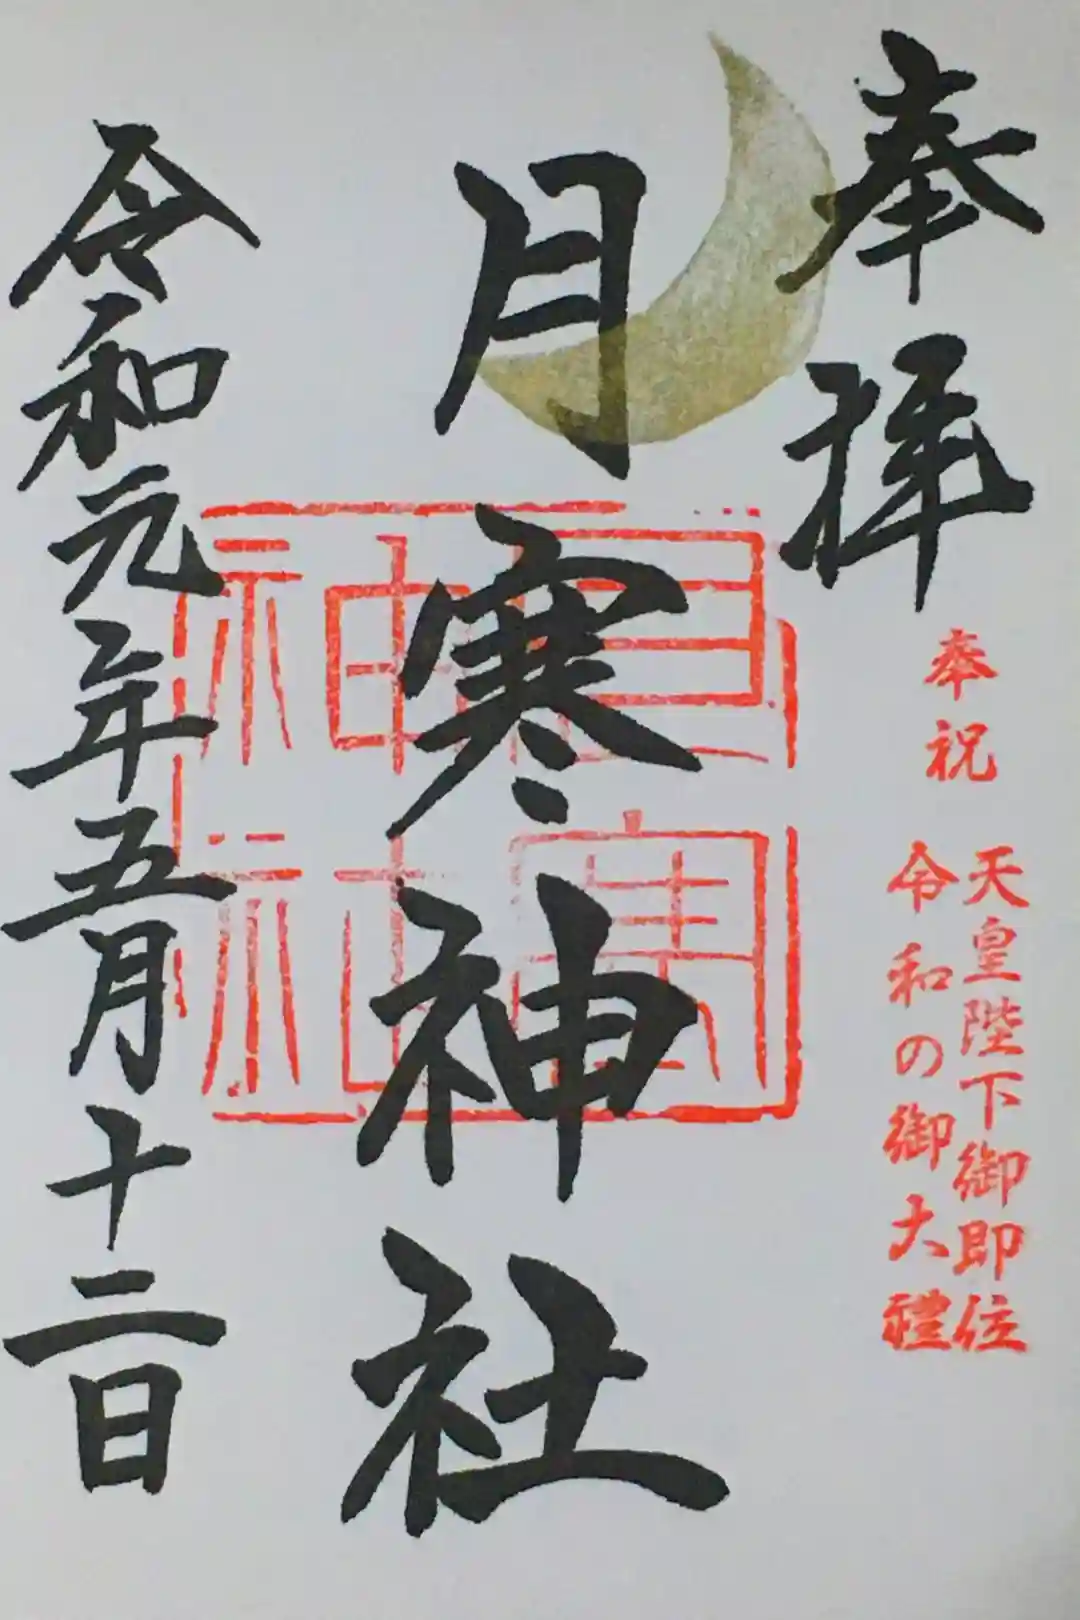 奉拝
奉祝
天皇陛下御即位
令和の御大禮
月寒神社
月寒神社
令和元年五月十二日